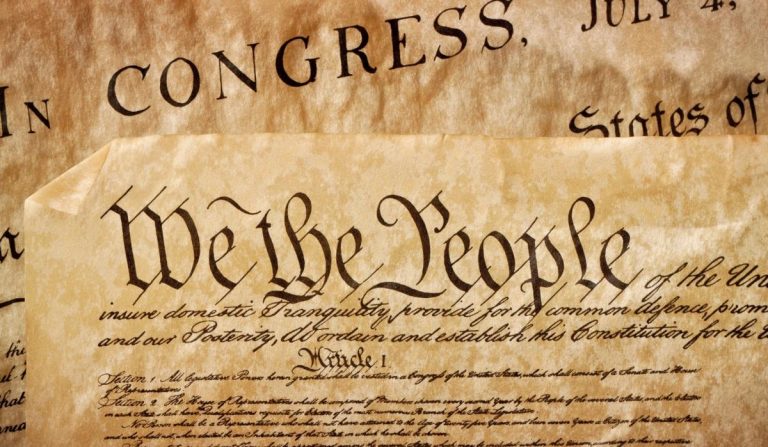 In CONGRESS, JULY 4,
States of
We the People of the Un
insure domestic Tranquility, provide for the common defence, prom
and our Posterity, do ordain and establish this Constitution for the U
Article 1
Section 1 All legislative Powers herein granted shall be vested in a Congress of the United States, which shall consist of a Senate and House
of Representatives.
Section 2 The House of Representatives shall be composed of Members chosen every second Year by the People of the several States, and the Electors
in each State shall have Qualifications requisite for Electors of the most numerous Branch of the State Legislature.
No Person shall be a Representative who shall not have attained to the Age of twenty five Years, and been seven Years a Citizen of the United States,
and who shall not, when elected, be an Inhabitant of that State in which he shall be chosen.
the
that